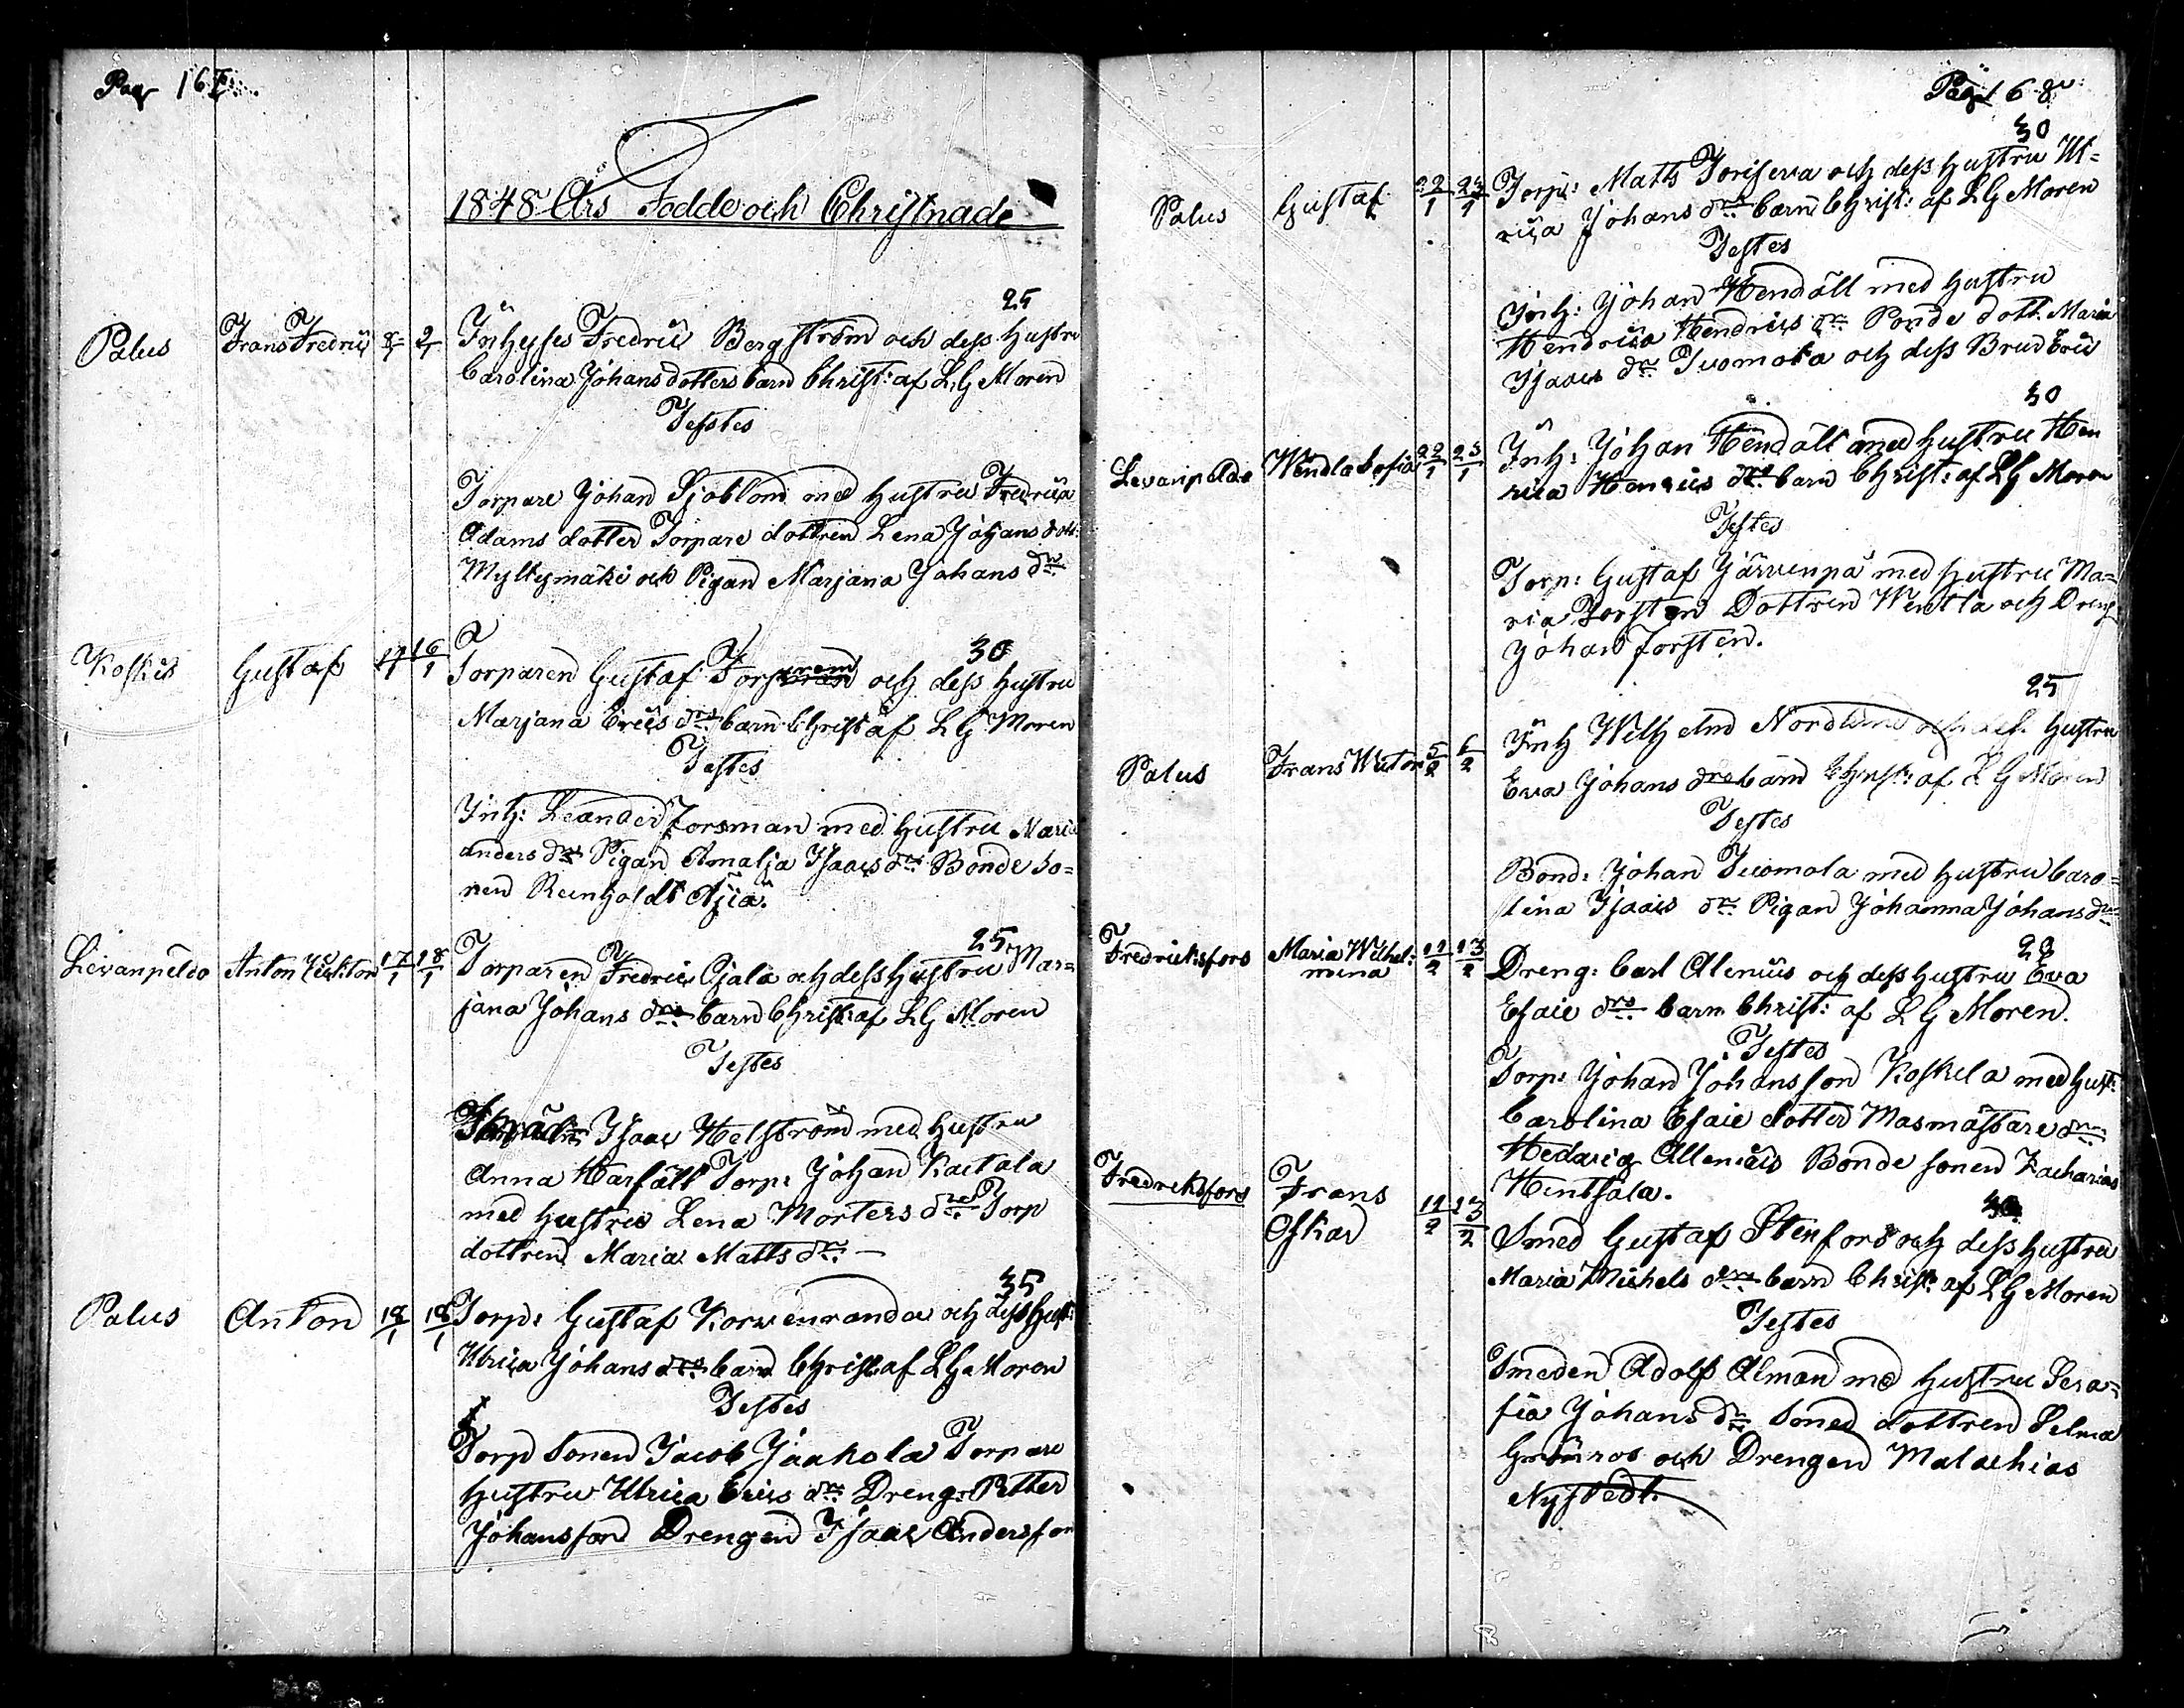 Pag 167
1848 Års Födde och Christnade
25
Palus Frans Fredric 8/1 9/1 Inhyses Fredric Bergström och dess Hustru
Carolina Johans dotters barn Christ: af L G Moren
Testes
Torpare Johan Sjöblom med Hustru Fredrica
Adams dotter Torpare dottren Lena Johans dott:
Myllymäki och Pigan Marjana Johans dr
30
Koskis Gustaf 16/1 Torparen Gustaf och dess Hustru
Marjana Erics drs barn Christ af L G Moren
Testes
Inh: Leander Forsman med Hustru Maria
Anders dr Pigan Amalja Isaacs dr Bonde So=
nen Reinholdt Äjiä.
25
Levanpeldo Anton Victor 17/1 18/1 Torparen Fredric Ojala och dess Hustru Mar=
jana Johans drs barn Christ: af L G Moren
Testes
Isaac Helström med Hustru
Anna Harfält Torp: Johan Kaitala
med Hustru Lena Mortens dr Torp
dottren Maria Matts dr —
35
Palus Anton 18/1 18/1 Torp: Gustaf Korwenranda och dess Hust:
Ulrica Johans drs barn Christ af L G Moren
Testes
Torp Sonen Jacob Jaakola Torpare
Hustru Ulrica Erics dr Dreng: Petter
Johansson Drengen Isaac Andersson
Pag 168
30
Palus Gustaf 22/1 23/1 Torp: Matts Torisewa och dess Hustru Ul=
rica Johans drs barn Christ: af L G Moren
Testes
Inh: Johan Hendäll med Hustru
Hendrica Hendrics dr Bonde dott: Maria
Isaacs dr Tuomola och dess Brud Eric
30
Levanpeldo Wendla Sofia 22/1 23/1 Inh: Johan Hendäll med Hustru Hen
rica Henrics drs barn Christ: af L G Moren
Testes
Torp: Gustaf Järvenpä med Hustru Ma=
ria Forsten Dottren Wentla och Dreng
Johan Forsten.
25
Palus Frans Victor 5/2 6/2 Inh Wilhelm Nordlund och dess Hustru
Eva Johans drs barn Christ: af L G Moren
Testes
Bond: Johan Tuomola med Hustru Caro=
lina Isaacs dr Pigan Johanna Johans dr
23
Fredricksfors Maria Wilhel:
mina 11/2 13/2 Dreng: Carl Alenius och dess Hustru Eva
Esaie drs barn Christ: af L G Moren.
Testes
Torp: Johan Johansson Koskela med Hust:
Carolina Esaie dotter Masmästare dr
Hedwig Allenius Bonde sonen Zacharias
Hentsala.
Fredricksfors Frans
Oskar 11/2 13/2 Smed Gustaf Stenfors och dess Hustru
Maria Michels drs barn Christ: af L G Moren
Testes
Smeden Adolf Alman med Hustru Sera=
fia Johans dr Smed dottren Selma
Grönros och Drengen Malachias
Nystedt.